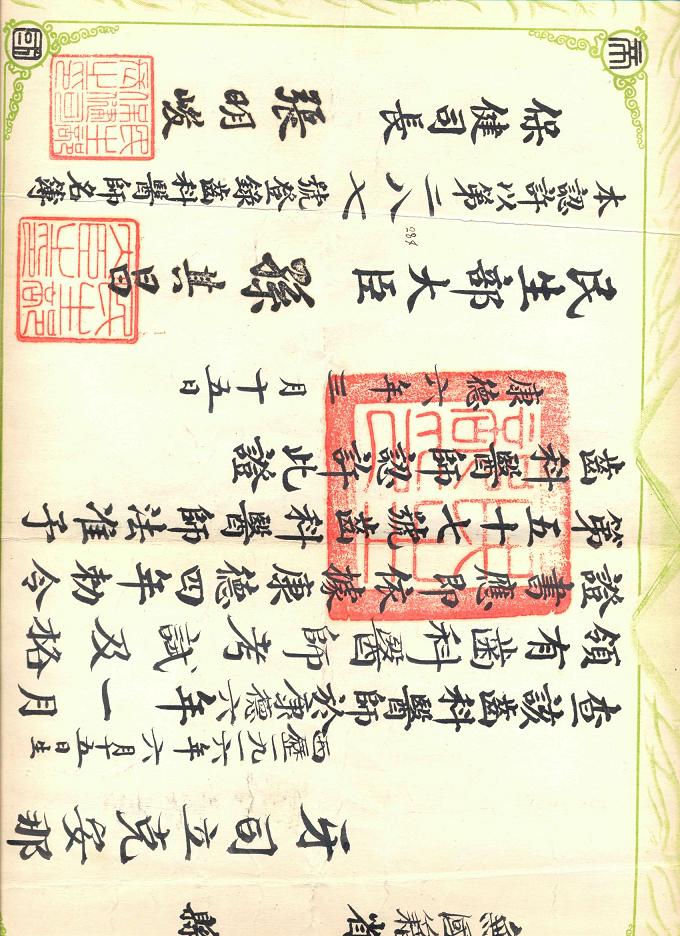 無國籍 省 縣
牙司立克安那
西歷一九一六年六月十五日生
查該齒科醫師於康德六年一月
領有齒科醫師考試及格
證書應即依據康德四年勅令
第五十七號齒科醫師法准予
齒科醫師認許此證
康德六年三月十五日
民生部大臣 孫其昌
284
本認許以第二八七號登錄齒科醫師名簿
保健司長 張明峻